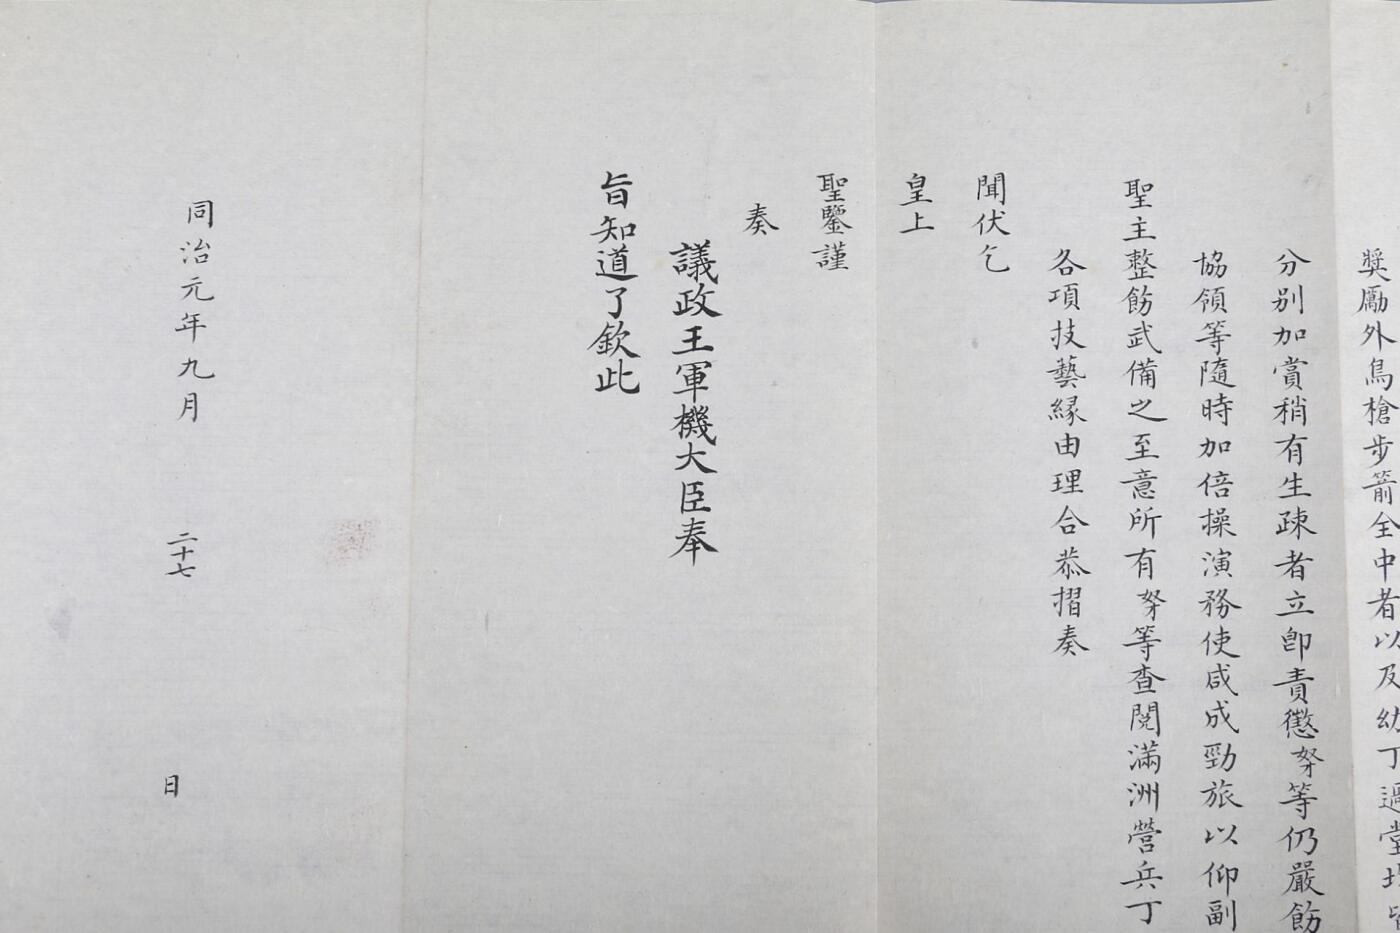 奬勵外鳥槍步箭全中者以及幼丁過堂均
分别加賞稍有生疎者立卽責懲奴才等仍嚴飭
協領等隨時加倍操演務使咸成勁旅以仰副
聖主整飭武備之至意所有奴才等查閱滿洲營兵丁
各項技藝縁由理合恭摺奏
聞伏乞
皇上
聖鑒謹
奏
議政王軍機大臣奉
旨知道了欽此
同治元年九月二十七日